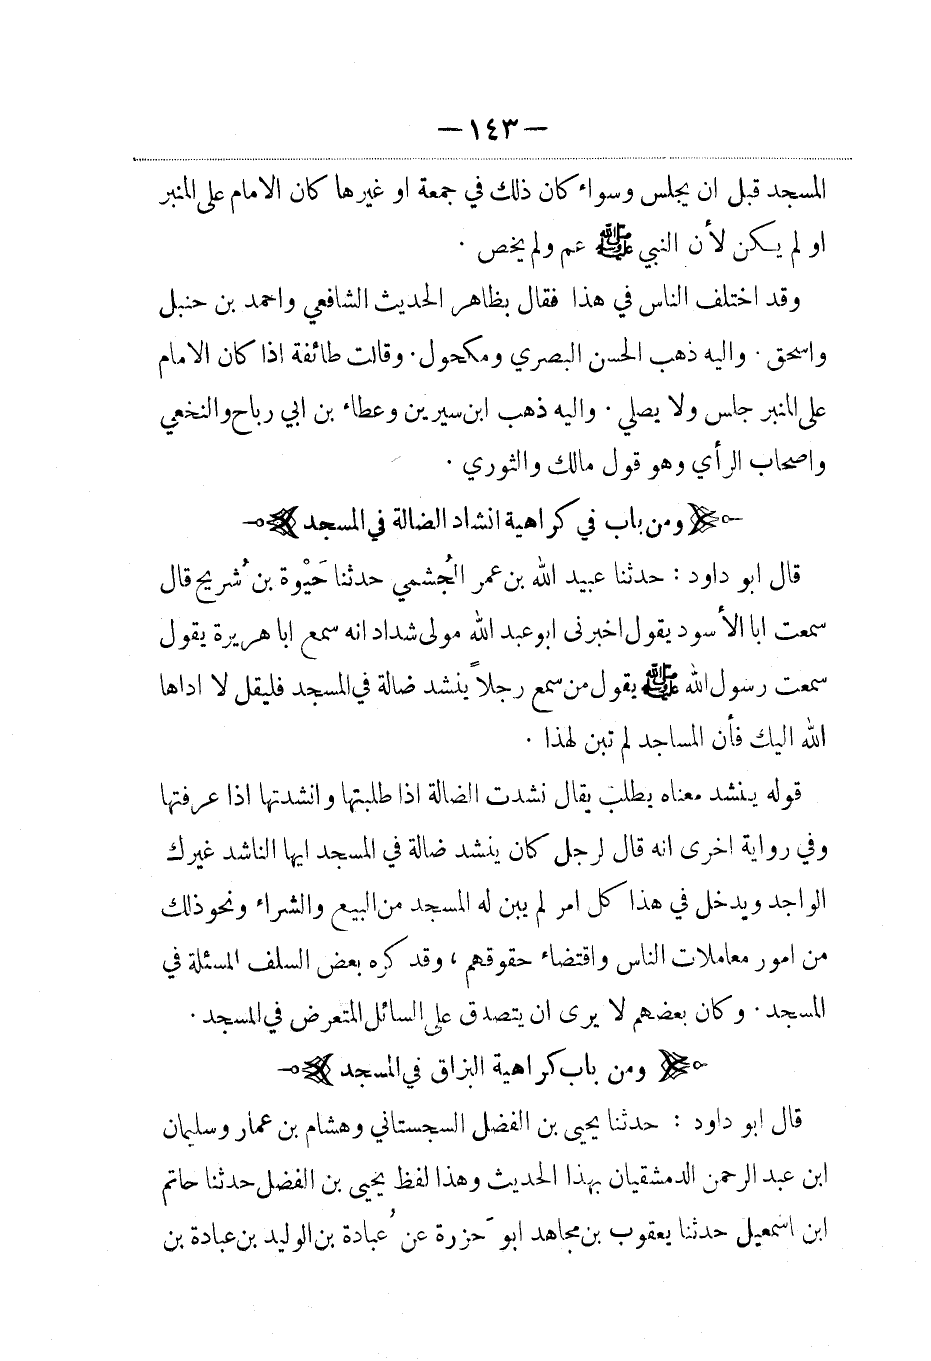 — ١٤٣ —
المسجد قبل ان يجلس وسواء كان ذلك في جمعة او غيرها كان الامام على المنبر
او لم يكن لأن النبي ﷺ عم ولم يخص .
وقد اختلف الناس في هذا فقال بظاهر الحديث الشافعي واحمد بن حنبل
واسحق . واليه ذهب الحسن البصري ومكحول . وقالت طائفة اذا كان الامام
على المنبر جلس ولا يصلي . واليه ذهب ابن سيرين وعطاء بن ابي رباح والنخعي
واصحاب الرأي وهو قول مالك والثوري .
ومن باب في كراهية انشاد الضالة في المسجد
قال ابو داود : حدثنا عبيد الله بن عمر الجُشمي حدثنا حَيْوة بن شُريح قال
سمعت ابا الأسود يقول اخبرنى ابو عبد الله مولى شداد انه سمع ابا هريرة يقول
سمعت رسول الله ﷺ يقول من سمع رجلاً ينشد ضالة في المسجد فليقل لا اداها
الله اليك فأن المساجد لم تبن لهذا .
قوله ينشد معناه يطلب يقال نشدت الضالة اذا طلبتها وانشدتها اذا عرفتها
وفي رواية اخرى انه قال لرجل كان ينشد ضالة في المسجد ايها الناشد غيرك
الواجد ويدخل في هذا كل امر لم يبن له المسجد من البيع والشراء ونحو ذلك
من امور معاملات الناس واقتضاء حقوقهم ، وقد كره بعض السلف المسئلة في
المسجد . وكان بعضهم لا يرى ان يتصدق على السائل المتعرض في المسجد .
ومن باب كراهية البزاق في المسجد
قال ابو داود : حدثنا يحيى بن الفضل السجستاني وهشام بن عمار وسليمان
ابن عبد الرحمن الدمشقيان بهذا الحديث وهذا لفظ يحيى بن الفضل حدثنا حاتم
ابن اسمعيل حدثنا يعقوب بن مجاهد ابو حَزرة عن عُبادة بن الوليد بن عبادة بن